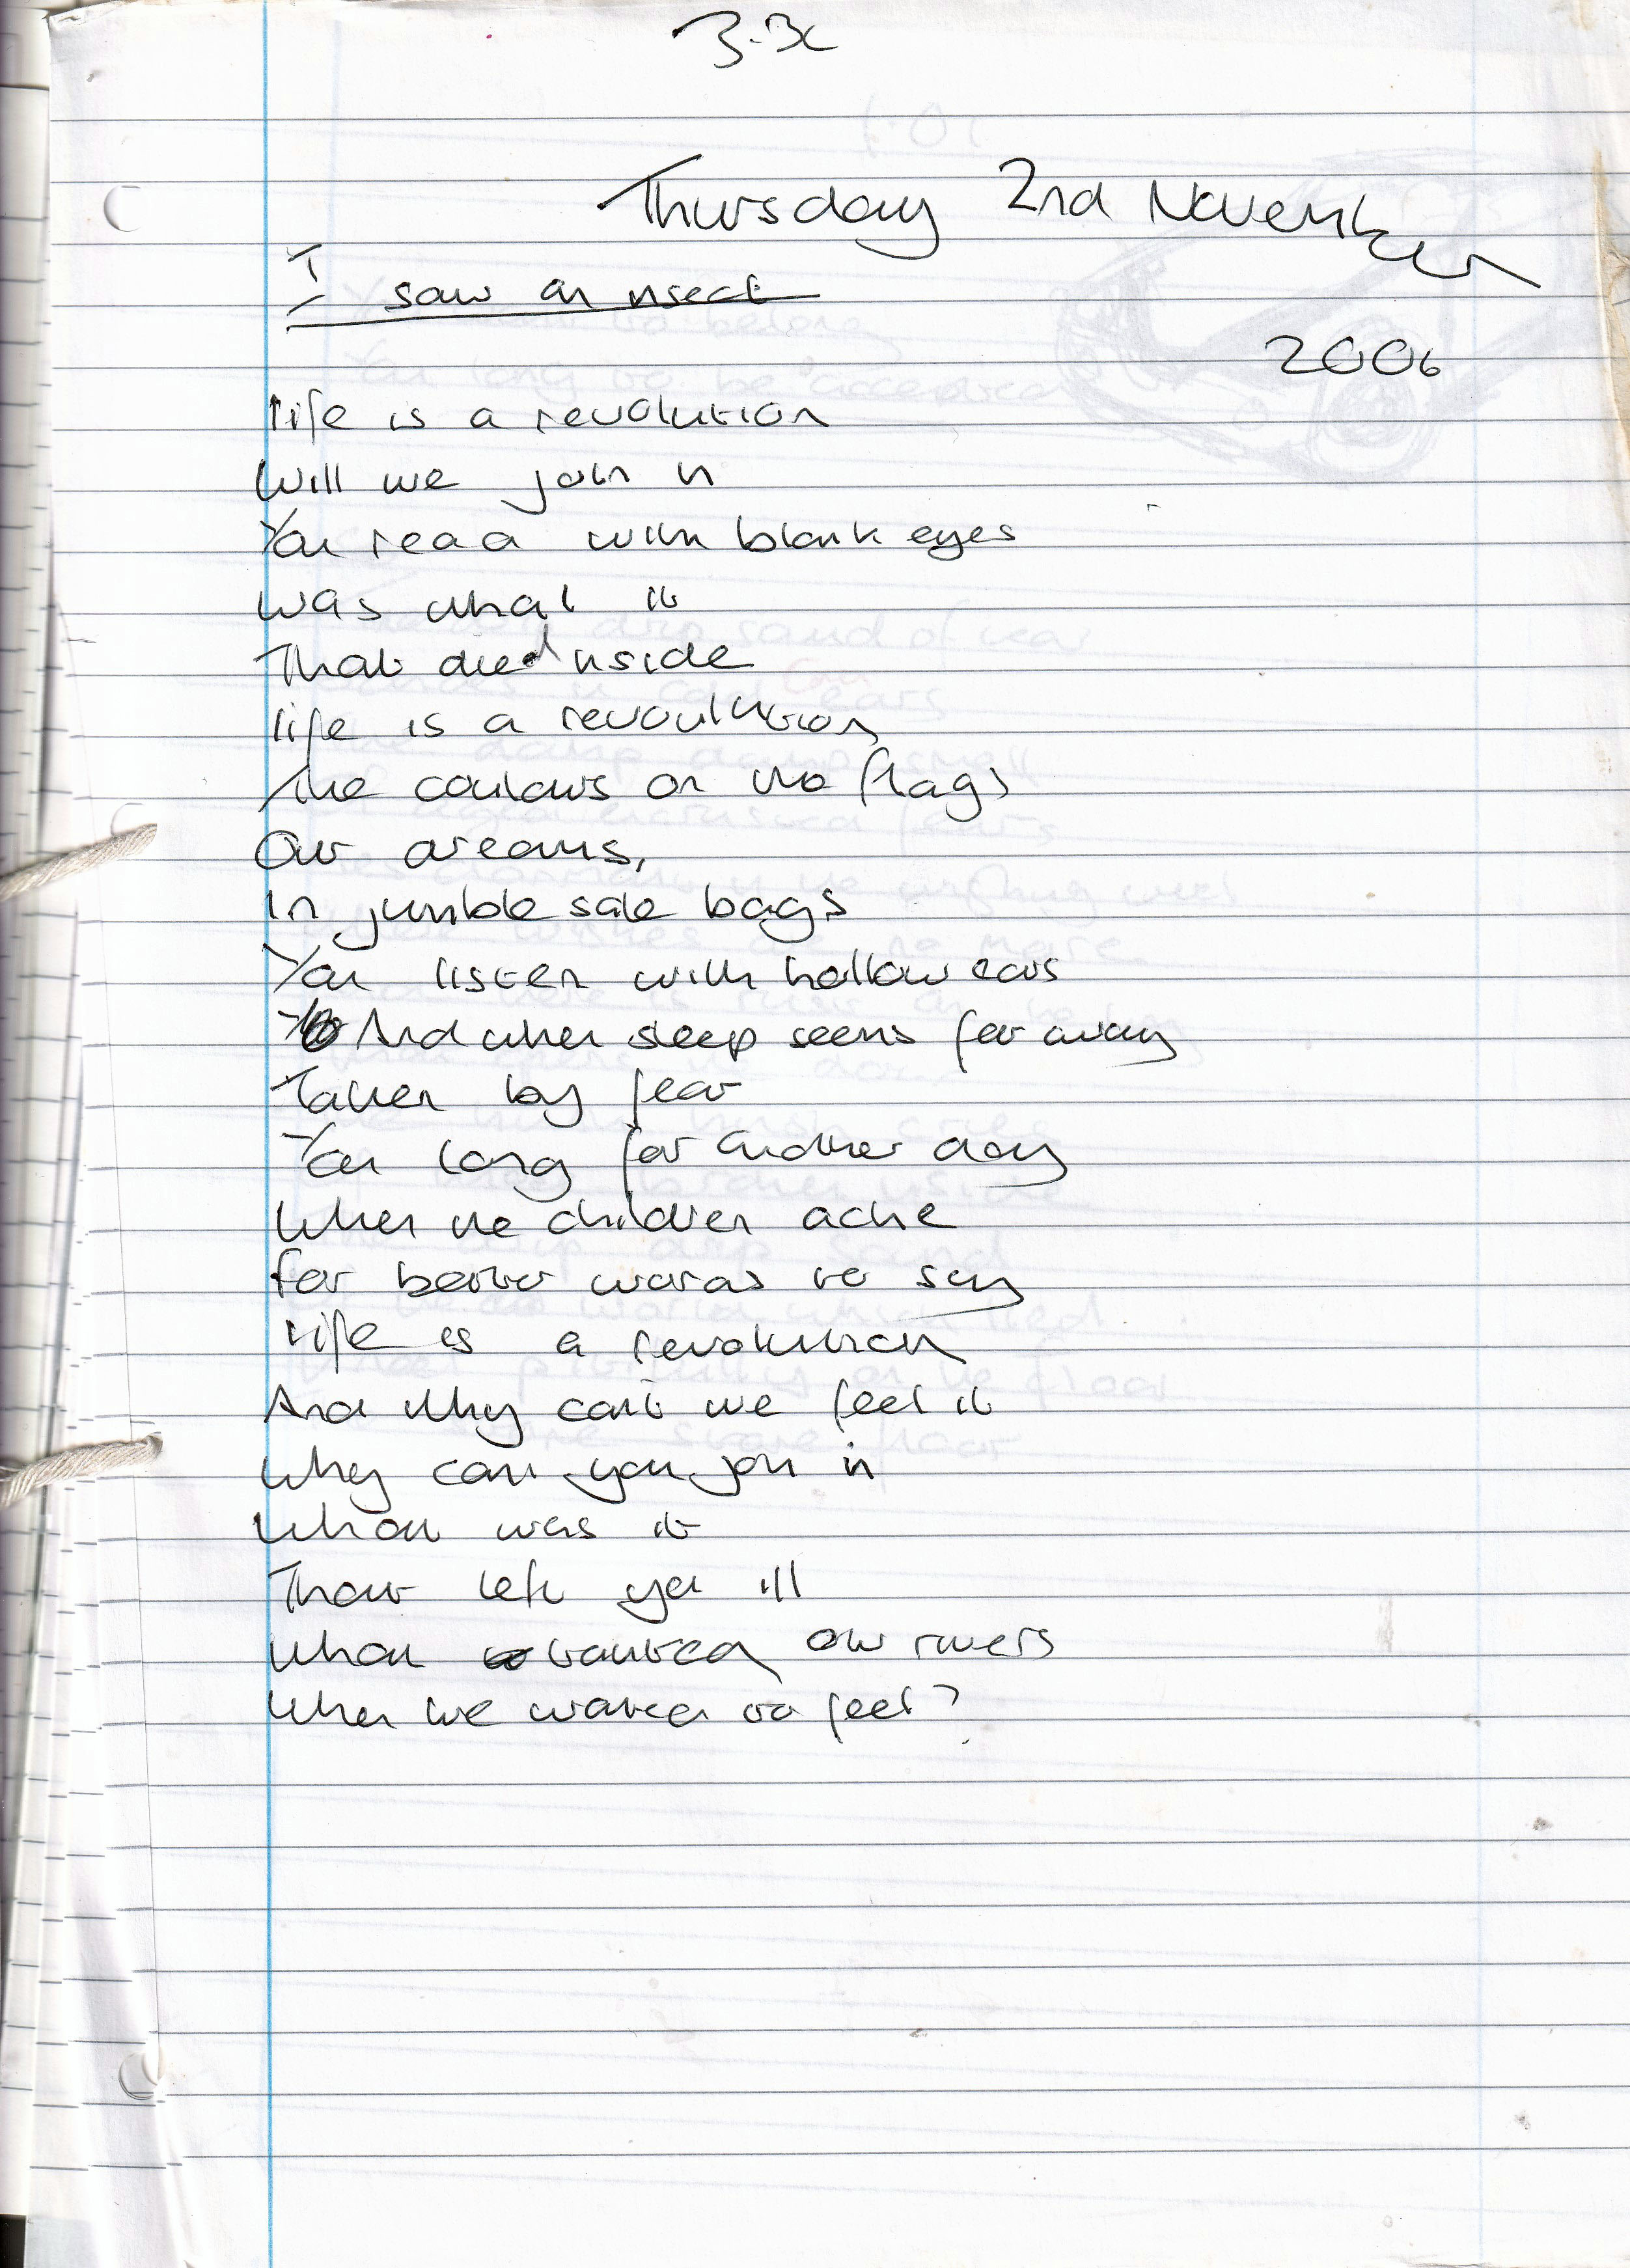 Thursday 2nd November
I saw an insect
2006
life is a revolution
Will we join in
You read with blank eyes
was what it
That died inside
life is a revoulution
The coulours on the flags
Our dreams,
In jumble sale bags
You listen with hollow ears
And when sleep seems far away
Taken by fear
You long for another day
When the children ache
for better words to say
life is a revolution
And why can't we feel it
Why can't you join in
What was it
That left you ill
What our rivers
When we wanted to feel?